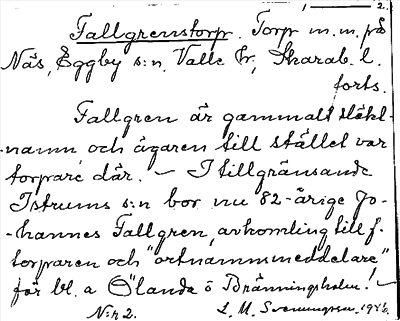 1 — 2.
Fallgrenstorp. Torp m.m. på
Näs, Eggby s:n, Valle hr, Skarab. l.
forts.
Fallgren är gammalt släkt-
-namn och ägaren till stället var
torpare där. – I tillgränsande
Istrums s:n bor nu 82-årige Jo-
-hannes Fallgren, avkomling till f.
torparen och "ortnammsmeddelare"
för bl. a Ölanda o Bränningsholm! –
N:r 2. L. M. Svenungsson 194